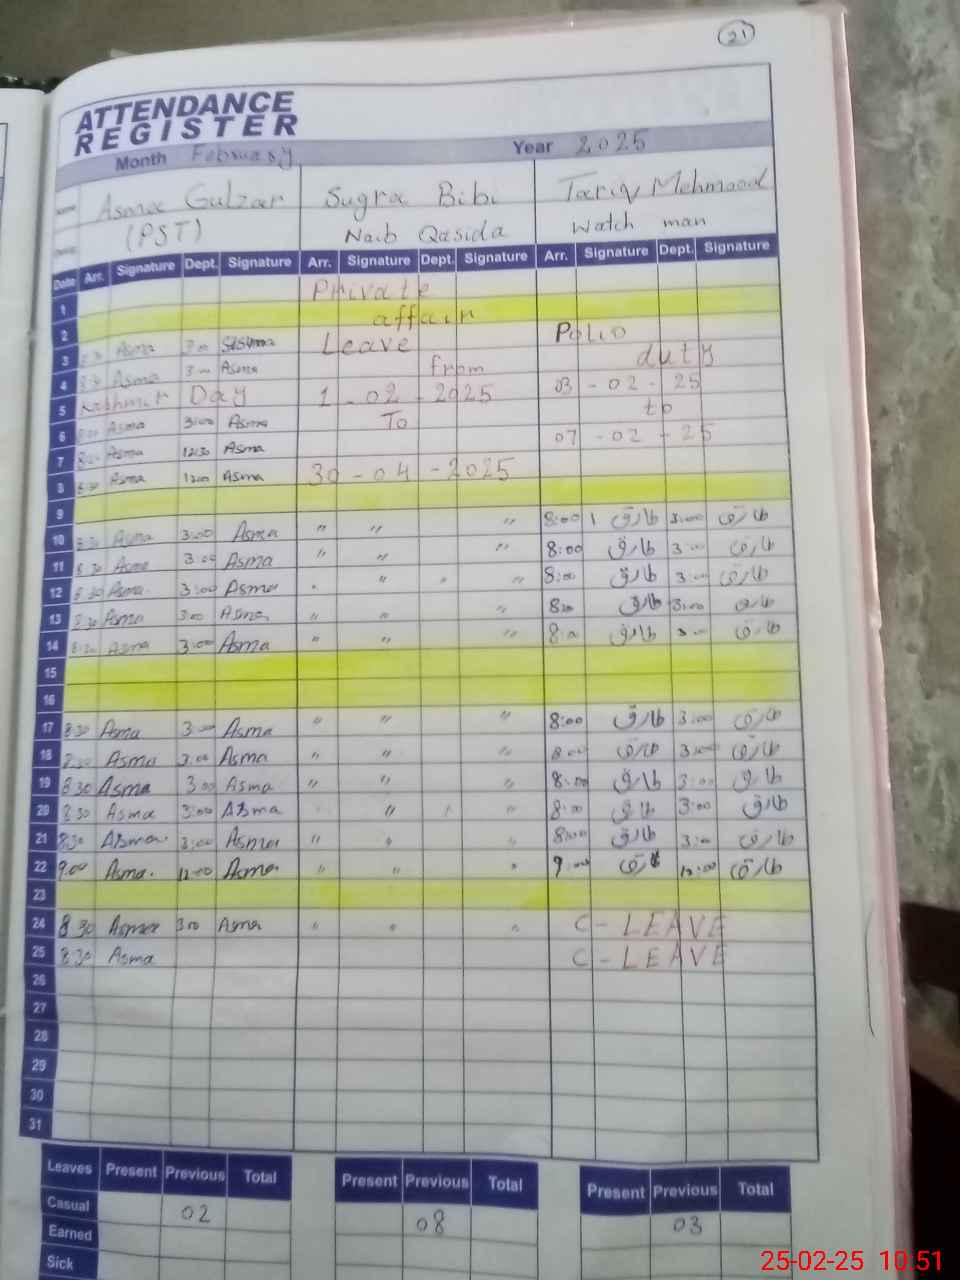 21
ATTENDANCE
REGISTER
Month February Year 2025
Name Asma Gulzar Sugra Bibi Tariq Mehmood
(PST) Naib Qasida Watch man
Date Arr. Signature Dept. Signature Arr. Signature Dept. Signature Arr. Signature Dept. Signature
1 Private
2 affair Polio
3 Asma 3:00 Leave duty
4 8:30 Asma 3:00 Asma From 03-02-25
5 Kashmir Day 1-02-2025 to
6 Asma 3:00 Asma To 07-02-25
7 Asma 12:30 Asma
8 8:30 Asma 12:00 Asma 30-04-2025
9
10 8:30 Asma 3:00 Asma " " " 8:00 طارق 3:00 طارق
11 8:30 Asma 3:00 Asma " " " 8:00 طارق 3:00 طارق
12 8:30 Asma 3:00 Asma " " " " 8:00 طارق 3:00 طارق
13 8:30 Asma 3:00 Asma " " " 8:00 طارق 3:00 طارق
14 8:30 Asma 3:00 Asma " " " 8:00 طارق 3:00 طارق
15
16
17 8:30 Asma 3:00 Asma " " " 8:00 طارق 3:00 طارق
18 8:30 Asma 3:00 Asma " " " 8:00 طارق 3:00 طارق
19 8:30 Asma 3:00 Asma " " " 8:00 طارق 3:00 طارق
20 8:30 Asma 3:00 Asma " " 8:00 طارق 3:00 طارق
21 8:30 Asma 3:00 Asma " " " 8:00 طارق 3:00 طارق
22 9:00 Asma 12:00 Asma " " " 9:00 طارق 12:00 طارق
23
24 8:30 Asma 3:00 Asma " " " C-LEAVE
25 8:30 Asma C-LEAVE
26
27
28
29
30
31
Leaves Present Previous Total Present Previous Total Present Previous Total
Casual 02 08 03
Earned
Sick
25-02-25 10:51